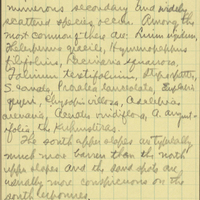 numerous secondary and widely
scattered species occur. Among the
most common these are: Linum rigidum,
Helepurus gracilis, Hymenopappus
filifolius, Pentstemon
Talinum teretifolium, Stipa spartea,
S. comata, Psoralea lanceolata, Euploca
geyeri, Chrysopsis villosa, Asclepias
arenaria, Acerates viridiflora, A. angusti-
folia, etc Kuhnistiras.
The south upper slopes are typically
much more barren than the north
upper slopes and the sand spots are
usually more conspicuous on the
south exposures.